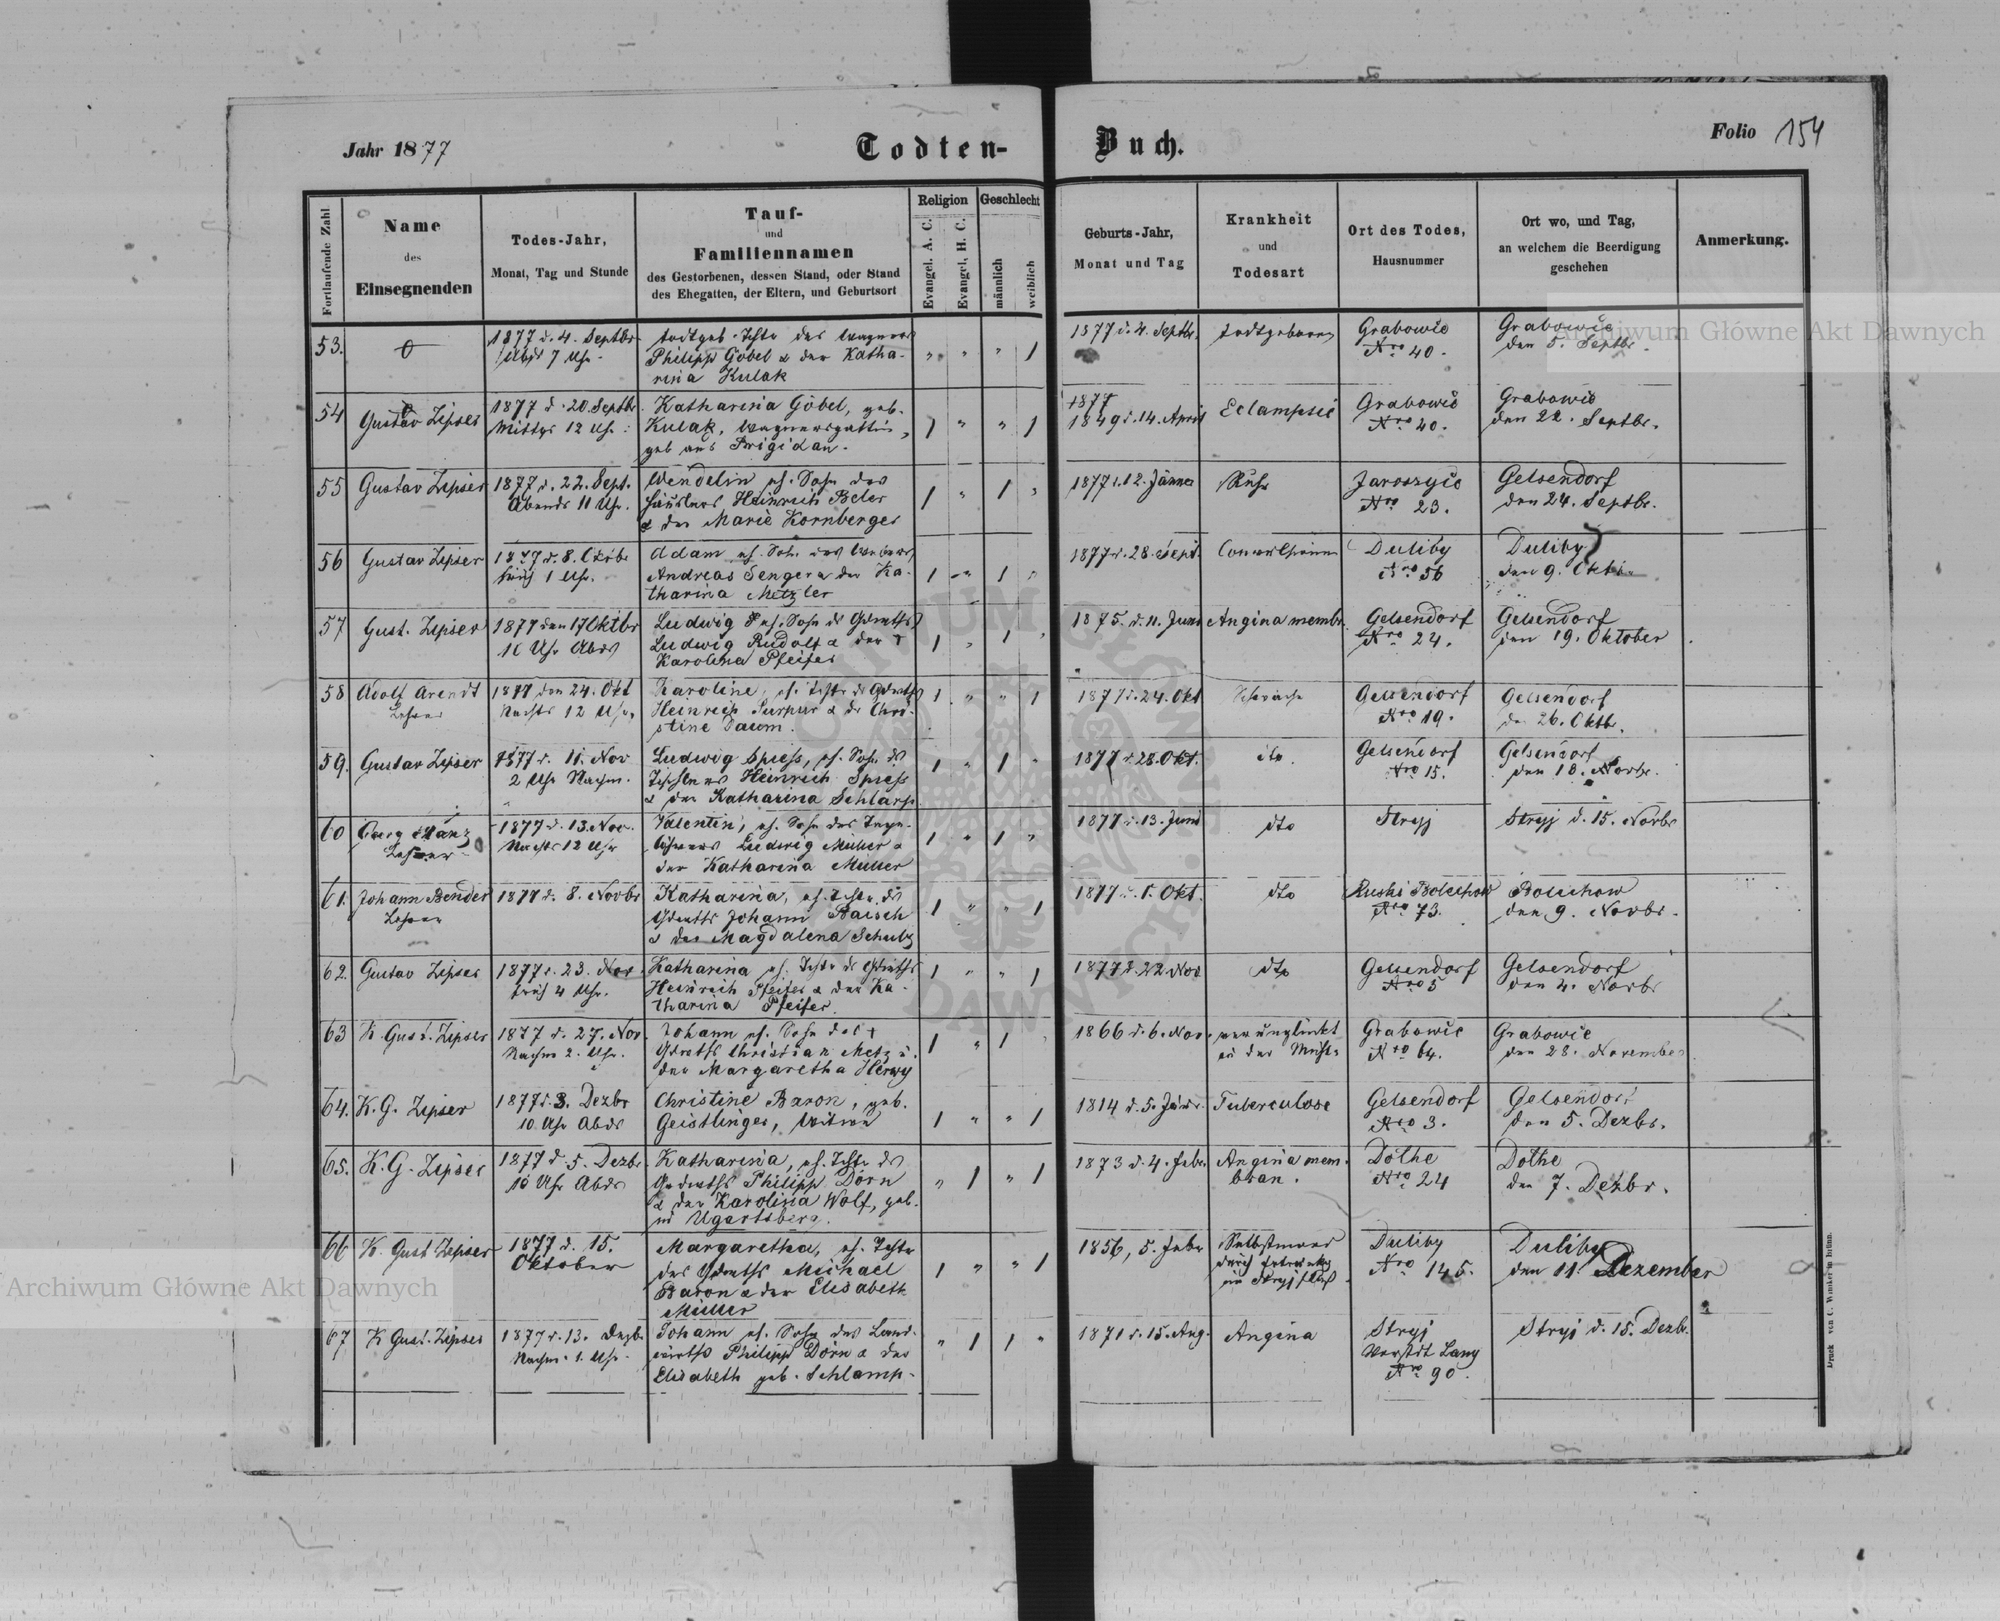 Jahr 1877
Todten-Buch.
Folio 154
Fortlaufende Zahl
Name
des
Einsegnenden
Todes-Jahr,
Monat, Tag und Stunde
Tauf-
und
Familiennamen
des Gestorbenen, dessen Stand, oder Stand
des Ehegatten, der Eltern, und Geburtsort
Religion
Evangel. A. C.
Evangel. H. C.
Geschlecht
männlich
weiblich
Geburts-Jahr,
Monat und Tag
Krankheit
und
Todesart
Ort des Todes,
Hausnummer
Ort wo, und Tag,
an welchem die Beerdigung
geschehen
Anmerkung.
53.
1877 d. 4. Septbr.
Abds 7 Uhr
todtgeb. Tchtr des Wagners
Philipp Göbel & der Katha-
rina Kulak
" " " 1
1877 d. 4. Septbr.
todtgeboren
Grabowic
Nro 40.
Grabowic
den 5. Septbr.
54
Gustav Zipser
1877 d. 20. Septbr.
Mittgs 12 Uhr
Katharina Göbel, geb.
Kulak, Wagnersgattin,
geb. aus Brigidau.
1 " " 1
1877
1849 d. 14. April
Eclampsie
Grabowic
Nro 40.
Grabowic
den 22. Septbr.
55
Gustav Zipser
1877 d. 22. Sept.
Abends 11 Uhr.
Wendelin eh. Sohn des
Häuslers Heinrich Beler
& der Marie Kornberger
1 " 1 "
1877 d. 12. Jänner
Ruhr
Jaroszyic
Nro 23.
Gelsendorf
den 24. Septbr.
56
Gustav Zipser
1877 d. 8. Oktbr
früh 1 Uhr.
Adam eh. Sohn des Webers
Andreas Senger & der Ka-
tharina Metzler
1 " 1 "
1877 d. 28. Sept.
Duliby
Nro 56
Duliby
den 9. Oktb.
57
Gust. Zipser
1877 den 17 Oktbr
10 Uhr Abds
Ludwig eh. Sohn ds Grdwths
Ludwig Rudolf & der †
Karolina Pfeifer
1 " 1 "
1875. d. 11. Juni
Angina membr.
Gelsendorf
Nro 24.
Gelsendorf
den 19. Oktober
58
Adolf Arendt
Lehrer
1877 den 24. Okt
Nachts 12 Uhr
Karoline, eh. Tchtr ds Grdwths
Heinrich Purpur & dr Chri-
stine Daum.
1 " " 1
1877 d. 24. Okt
Schwäche
Gelsendorf
Nro 19.
Gelsendorf
den 26. Oktb.
59.
Gustav Zipser
1877 d. 11. Nov
2 Uhr Nachm.
Ludwig Spiess, eh. Sohn ds
Tischlers Heinrich Spiess
& der Katharina Schlarp
1 " 1 "
1877 d 28. Okt.
dto.
Gelsendorf
Nro 15.
Gelsendorf
den 13. Novbr.
60
Georg Manz
Lehrer
1877 d. 13. Nov.
Nachts 12 Uhr
Valentin, eh. Sohn des Tage-
löhners Ludwig Müller &
der Katharina Müller
1 " 1 "
1877 d. 13. Juni
dto
Stryj
Stryj d. 15. Novbr
61.
Johann Bender
Lehrer
1877 d. 8. Novbr
Katharina, eh. Tchtr. ds
Grdwths Johann Baisch
& der Magdalena Schulz
1 " " 1
1877 d. 1. Okt.
dto
Ruski Bolechow
Nro 73.
Bolechow
den 9. Novbr.
62.
Gustav Zipser
1877 d. 23. Nov
früh 4 Uhr.
Katharina eh. Tchtr ds Grdwths
Heinrich Pfeifer & der Ka-
tharina Pfeifer.
1 " " 1
1877 d. 22. Nov
dto
Gelsendorf
Nro 5
Gelsendorf
den 24. Novbr
63
K. Gust. Zipser
1877 d. 27. Nov.
Nachm 2. Uhr.
Johann eh. Sohn des †
Grdwths Christian Metz u.
der Margaretha Herwy
1 " 1 "
1866 d. 6. Nov.
verunglückt
in der Mühle
Grabowic
Nro 64.
Grabowic
den 28. November
64.
K. G. Zipser
1877 d. 3. Dezbr
10 Uhr Abds
Christine Baron, geb.
Geistlinger, Witwe
1 " " 1
1814 d. 5. Jänr.
Tuberculose
Gelsendorf
Nro 3.
Gelsendorf
den 5. Dezbr.
65.
K. G. Zipser
1877 d 5. Dezbr.
10 Uhr Abds
Katharina, eh. Tchtr ds
Grdwths Philipp Dorn
& der Karolina Wolf, geb.
in Ugartsberg.
" 1 " 1
1873 d. 4. Febr.
Angina mem-
bran.
Dothe
Nro 24
Dothe
den 7. Dezbr.
66
K. Gust Zipser
1877 d. 15.
Oktober
Margaretha, eh. Tchtr
des Grdwths Michael
Baron & der Elisabeth
Müller
1 " " 1
1856, 5. Febr
Selbstmord
durch Ertränkg
im Stryjfluß
Duliby
Nro 145.
Duliby
den 11. Dezember
67
K Gust. Zipser
1877 d. 13. Dezb.
Nachm. 1. Uhr.
Johann eh. Sohn des Land-
wirths Philipp Dorn & der
Elisabeth geb. Schlamp.
" 1 1 "
1871 d. 15. Aug.
Angina
Stryj
Vorstdt Lany
Nro 90.
Stryj d. 15. Dezbr.
Druck von C. Winiker in Brünn.
Archiwum Główne Akt Dawnych
Archiwum Główne Akt Dawnych
ARCHIWUM GŁÓWNE AKT DAWNYCH